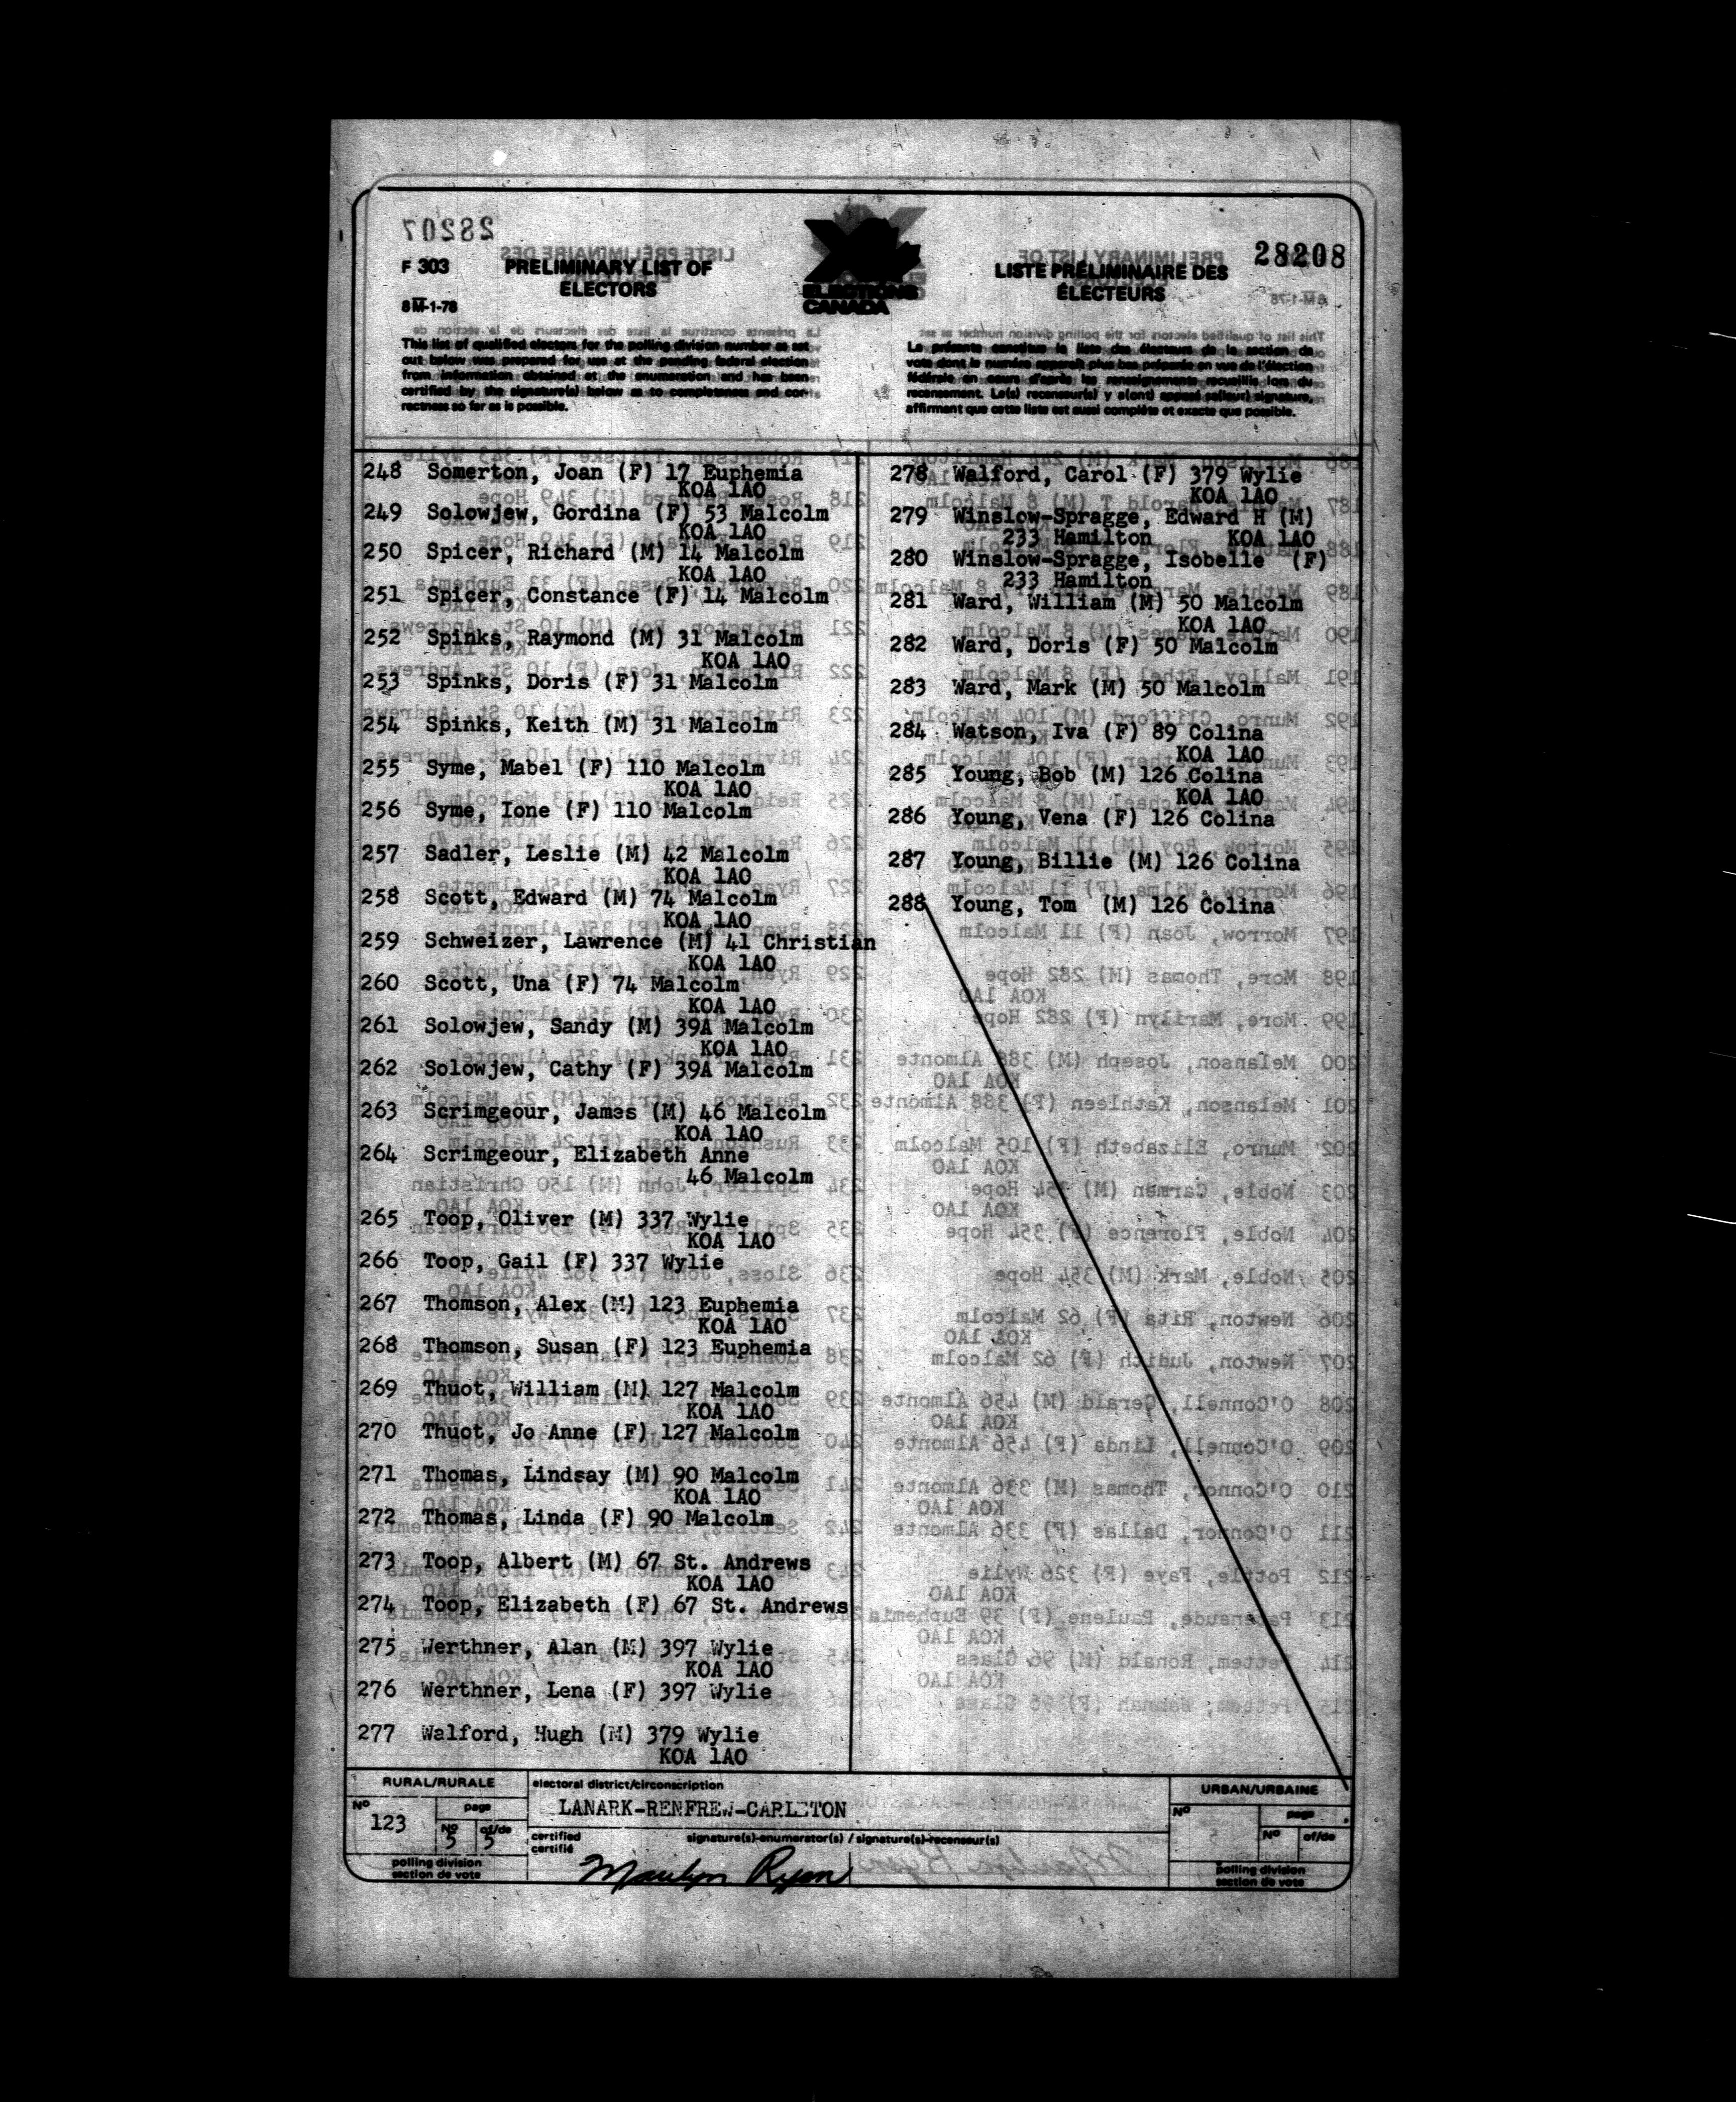 28208
F 303
PRELIMINARY LIST OF
ELECTORS
8M-1-78
ELECTIONS
CANADA
LISTE PRÉLIMINAIRE DES
ÉLECTEURS
This list of qualified electors for the polling division number as set
out below was prepared for use at the pending federal election
from information obtained at the enumeration and has been
certified by the signature(s) below as to completeness and cor-
rectness so far as is possible.
La présente constitue la liste des électeurs de la section de
vote dont le numéro apparaît plus bas préparée en vue de l'élection
fédérale en cours d'après les renseignements recueillis lors du
recensement. Le(s) recenseur(s) y a(ont) apposé sa(leur) signature,
affirmant que cette liste est aussi complète et exacte que possible.
248 Somerton, Joan (F) 17 Euphemia
KOA 1AO
249 Solowjew, Gordina (F) 53 Malcolm
KOA 1AO
250 Spicer, Richard (M) 14 Malcolm
KOA 1AO
251 Spicer, Constance (F) 14 Malcolm
252 Spinks, Raymond (M) 31 Malcolm
KOA 1AO
253 Spinks, Doris (F) 31 Malcolm
254 Spinks, Keith (M) 31 Malcolm
255 Syme, Mabel (F) 110 Malcolm
KOA 1AO
256 Syme, Ione (F) 110 Malcolm
257 Sadler, Leslie (M) 42 Malcolm
KOA 1AO
258 Scott, Edward (M) 74 Malcolm
KOA 1AO
259 Schweizer, Lawrence (M) 41 Christian
KOA 1AO
260 Scott, Una (F) 74 Malcolm
KOA 1AO
261 Solowjew, Sandy (M) 39A Malcolm
KOA 1AO
262 Solowjew, Cathy (F) 39A Malcolm
263 Scrimgeour, James (M) 46 Malcolm
KOA 1AO
264 Scrimgeour, Elizabeth Anne
46 Malcolm
265 Toop, Oliver (M) 337 Wylie
KOA 1AO
266 Toop, Gail (F) 337 Wylie
267 Thomson, Alex (M) 123 Euphemia
KOA 1AO
268 Thomson, Susan (F) 123 Euphemia
269 Thuot, William (M) 127 Malcolm
KOA 1AO
270 Thuot, Jo Anne (F) 127 Malcolm
271 Thomas, Lindsay (M) 90 Malcolm
KOA 1AO
272 Thomas, Linda (F) 90 Malcolm
273 Toop, Albert (M) 67 St. Andrews
KOA 1AO
274 Toop, Elizabeth (F) 67 St. Andrews
275 Werthner, Alan (M) 397 Wylie
KOA 1AO
276 Werthner, Lena (F) 397 Wylie
277 Walford, Hugh (M) 379 Wylie
KOA 1AO
278 Walford, Carol (F) 379 Wylie
KOA 1AO
279 Winslow-Spragge, Edward H (M)
233 Hamilton KOA 1AO
280 Winslow-Spragge, Isobelle (F)
233 Hamilton
281 Ward, William (M) 50 Malcolm
KOA 1AO
282 Ward, Doris (F) 50 Malcolm
283 Ward, Mark (M) 50 Malcolm
284 Watson, Iva (F) 89 Colina
KOA 1AO
285 Young, Bob (M) 126 Colina
KOA 1AO
286 Young, Vena (F) 126 Colina
287 Young, Billie (M) 126 Colina
288 Young, Tom (M) 126 Colina
RURAL/RURALE
No
123
page
No
5
of/de
5
polling division
section de vote
electoral district/circonscription
LANARK-RENFREW-CARLETON
certified
certifié
signature(s)-enumerator(s) / signature(s)-recenseur(s)
Marilyn Ryan
URBAN/URBAINE
No
page
No
of/de
polling division
section de vote